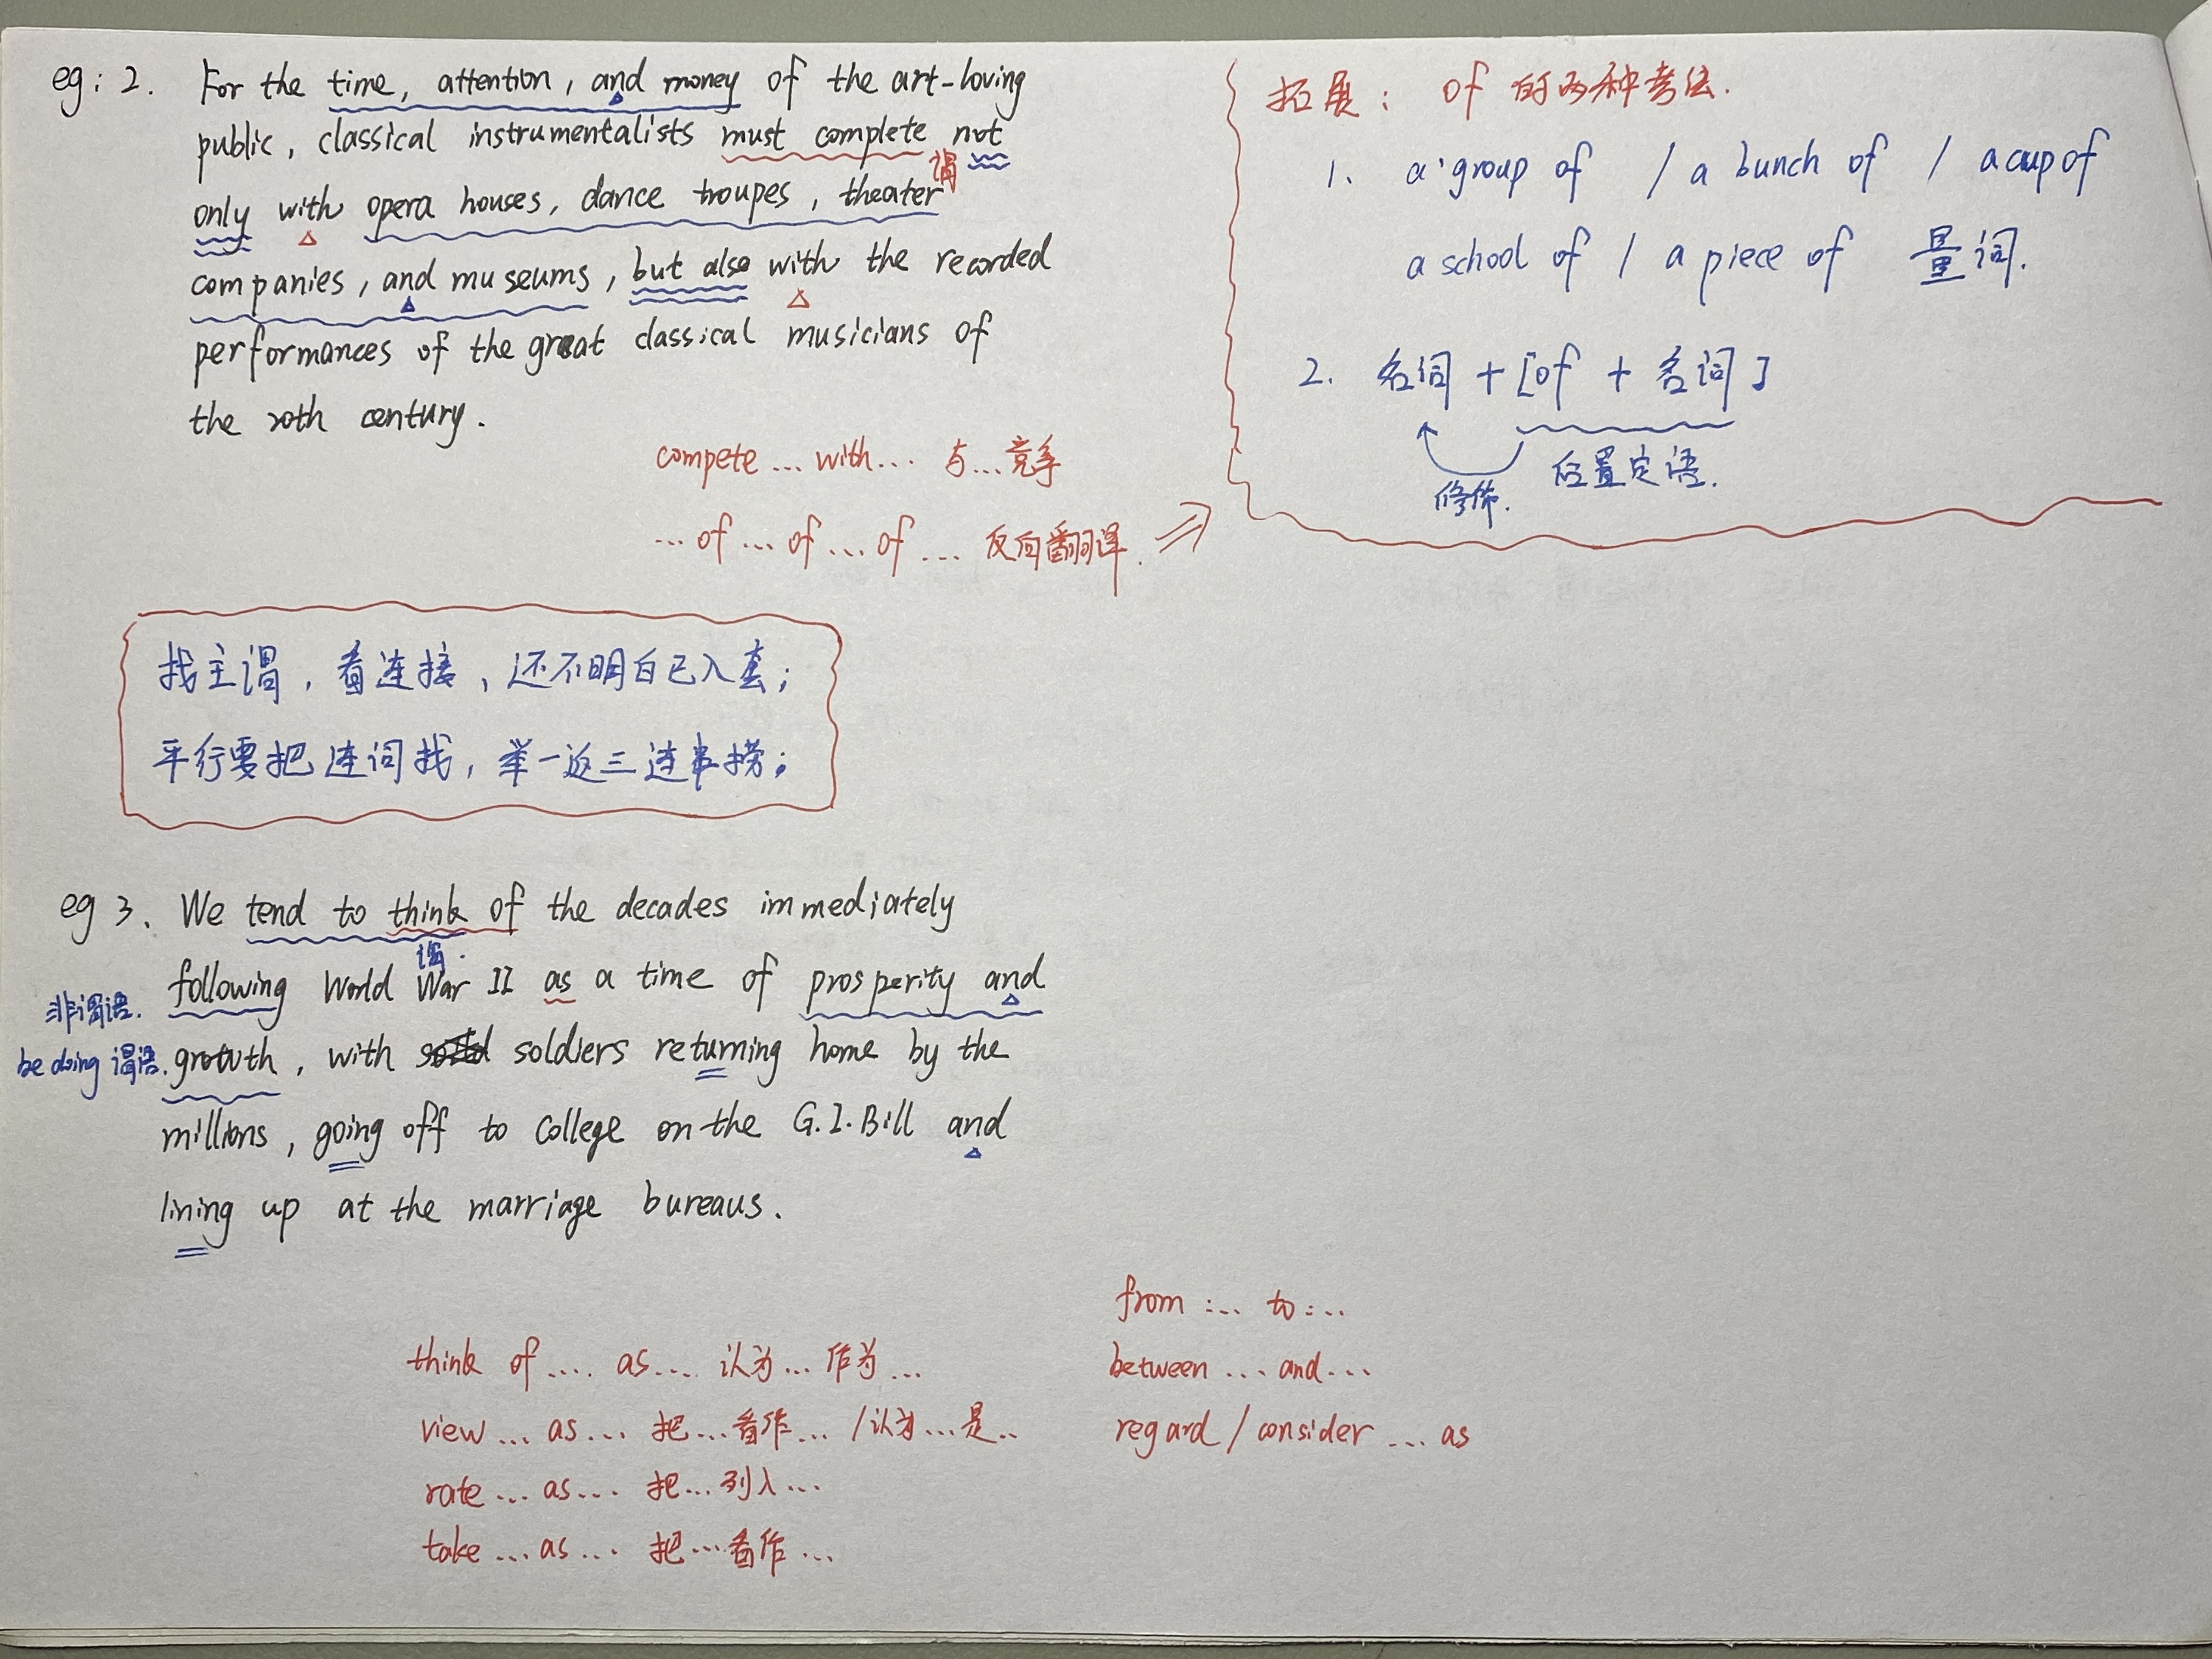 eg: 2. For the time, attention, and money of the art-loving
public, classical instrumentalists must complete not
谓
only with opera houses, dance troupes, theater
companies, and museums, but also with the recorded
performances of the great classical musicians of
the 20th century.
compete ... with ... 与...竞争
... of ... of ... of ... 反向翻译.
拓展: of 的两种考法.
1. a group of / a bunch of / a cup of
a school of / a piece of 量词.
2. 名词 + [of + 名词]
修饰. 后置定语.
找主谓, 看连接, 还不明白已入套;
平行要把连词找, 举一返三连串捞;
eg 3. We tend to think of the decades immediately
谓.
following World War II as a time of prosperity and
非谓语.
be doing 谓语.
growth, with soldiers returning home by the
millions, going off to college on the G.I.Bill and
lining up at the marriage bureaus.
think of .... as .... 认为... 作为...
view ... as ... 把...看作... /认为...是..
rate ... as ... 把...列入...
take ... as ... 把...看作...
from :... to :...
between ... and ...
regard / consider ... as